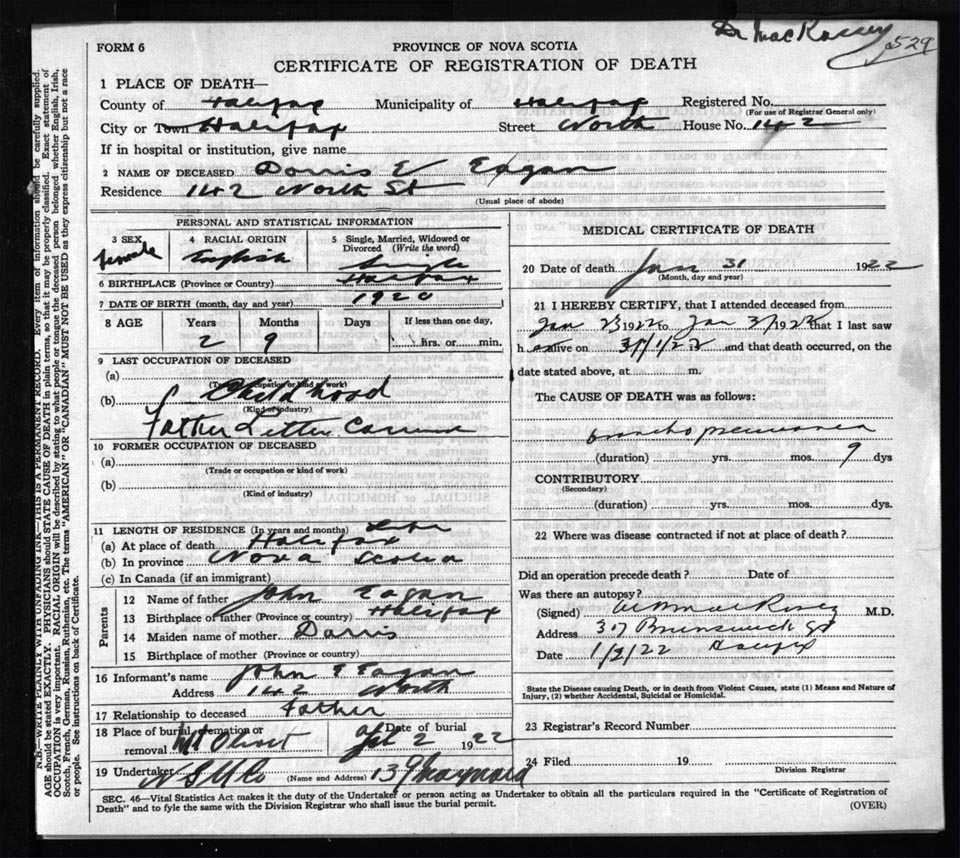 Dr MacKassey
529
FORM 6
PROVINCE OF NOVA SCOTIA
CERTIFICATE OF REGISTRATION OF DEATH
1 PLACE OF DEATH—
County of Halifax Municipality of Halifax Registered No.
(For use of Registrar General only)
City or Town Halifax Street North House No. 142
If in hospital or institution, give name
2 NAME OF DECEASED Dorris E Eagan
Residence 142 North St
(Usual place of abode)
PERSONAL AND STATISTICAL INFORMATION
3 SEX 4 RACIAL ORIGIN 5 Single, Married, Widowed or Divorced (Write the word)
female English Single
6 BIRTHPLACE (Province or Country) Halifax
7 DATE OF BIRTH (month, day and year) 1920
8 AGE Years Months Days If less than one day,
2 9 hrs. or min.
9 LAST OCCUPATION OF DECEASED
(a)
(Trade, occupation or kind of work)
(b) Child hood
(Kind of industry)
Father Letter Carrier
10 FORMER OCCUPATION OF DECEASED
(a)
(Trade or occupation or kind of work)
(b)
(Kind of industry)
11 LENGTH OF RESIDENCE (In years and months) Life
(a) At place of death Halifax
(b) In province Nova Scotia
(c) In Canada (if an immigrant)
Parents
12 Name of father John Eagan
13 Birthplace of father (Province or country) Halifax
14 Maiden name of mother Dorris
15 Birthplace of mother (Province or country)
16 Informant's name John Eagan
Address 142 North
17 Relationship to deceased Father
18 Place of burial, cremation or removal Mt Olivet Date of burial Feb 2 1922
19 Undertaker N S U Co (Name and Address) 139 Maynard
MEDICAL CERTIFICATE OF DEATH
20 Date of death Jan 31 1922
(Month, day and year)
21 I HEREBY CERTIFY, that I attended deceased from
Jan 23 1922 to Jan 31 1922 that I last saw
h er alive on 31/1/22 and that death occurred, on the
date stated above, at m.
The CAUSE OF DEATH was as follows:
broncho pneumonia
(duration) yrs. mos. 9 dys
CONTRIBUTORY
(Secondary)
(duration) yrs. mos. dys.
22 Where was disease contracted if not at place of death?
Did an operation precede death? Date of
Was there an autopsy?
(Signed) M.D.
Address 317 Brunswick St
Date 1/2/22 Halifax
State the Disease causing Death, or in death from Violent Causes, state (1) Means and Nature of
Injury, (2) whether Accidental, Suicidal or Homicidal.
23 Registrar's Record Number
24 Filed 19
Division Registrar
SEC. 46—Vital Statistics Act makes it duty of the Undertaker or person acting as Undertaker to obtain all the particulars required in the "Certificate of Registration of
Death" and to fyle the same with the Division Registrar who shall issue the burial permit. (OVER)
N.B.—WRITE PLAINLY WITH UNFADING INK—THIS IS A PERMANENT RECORD. Every item of information should be carefully supplied.
AGE should be stated EXACTLY. PHYSICIANS should STATE CAUSE OF DEATH in plain terms, so that it may be properly classified. Exact statement of
OCCUPATION is very important. RACIAL ORIGIN will be described by stating to what people or tongue the deceased person belonged whether English, Irish,
Scotch, French, German, Russian, Ruthenian, etc. The terms "AMERICAN" OR "CANADIAN" MUST NOT BE USED as they express citizenship but not a race
or people. See instructions on back of Certificate.